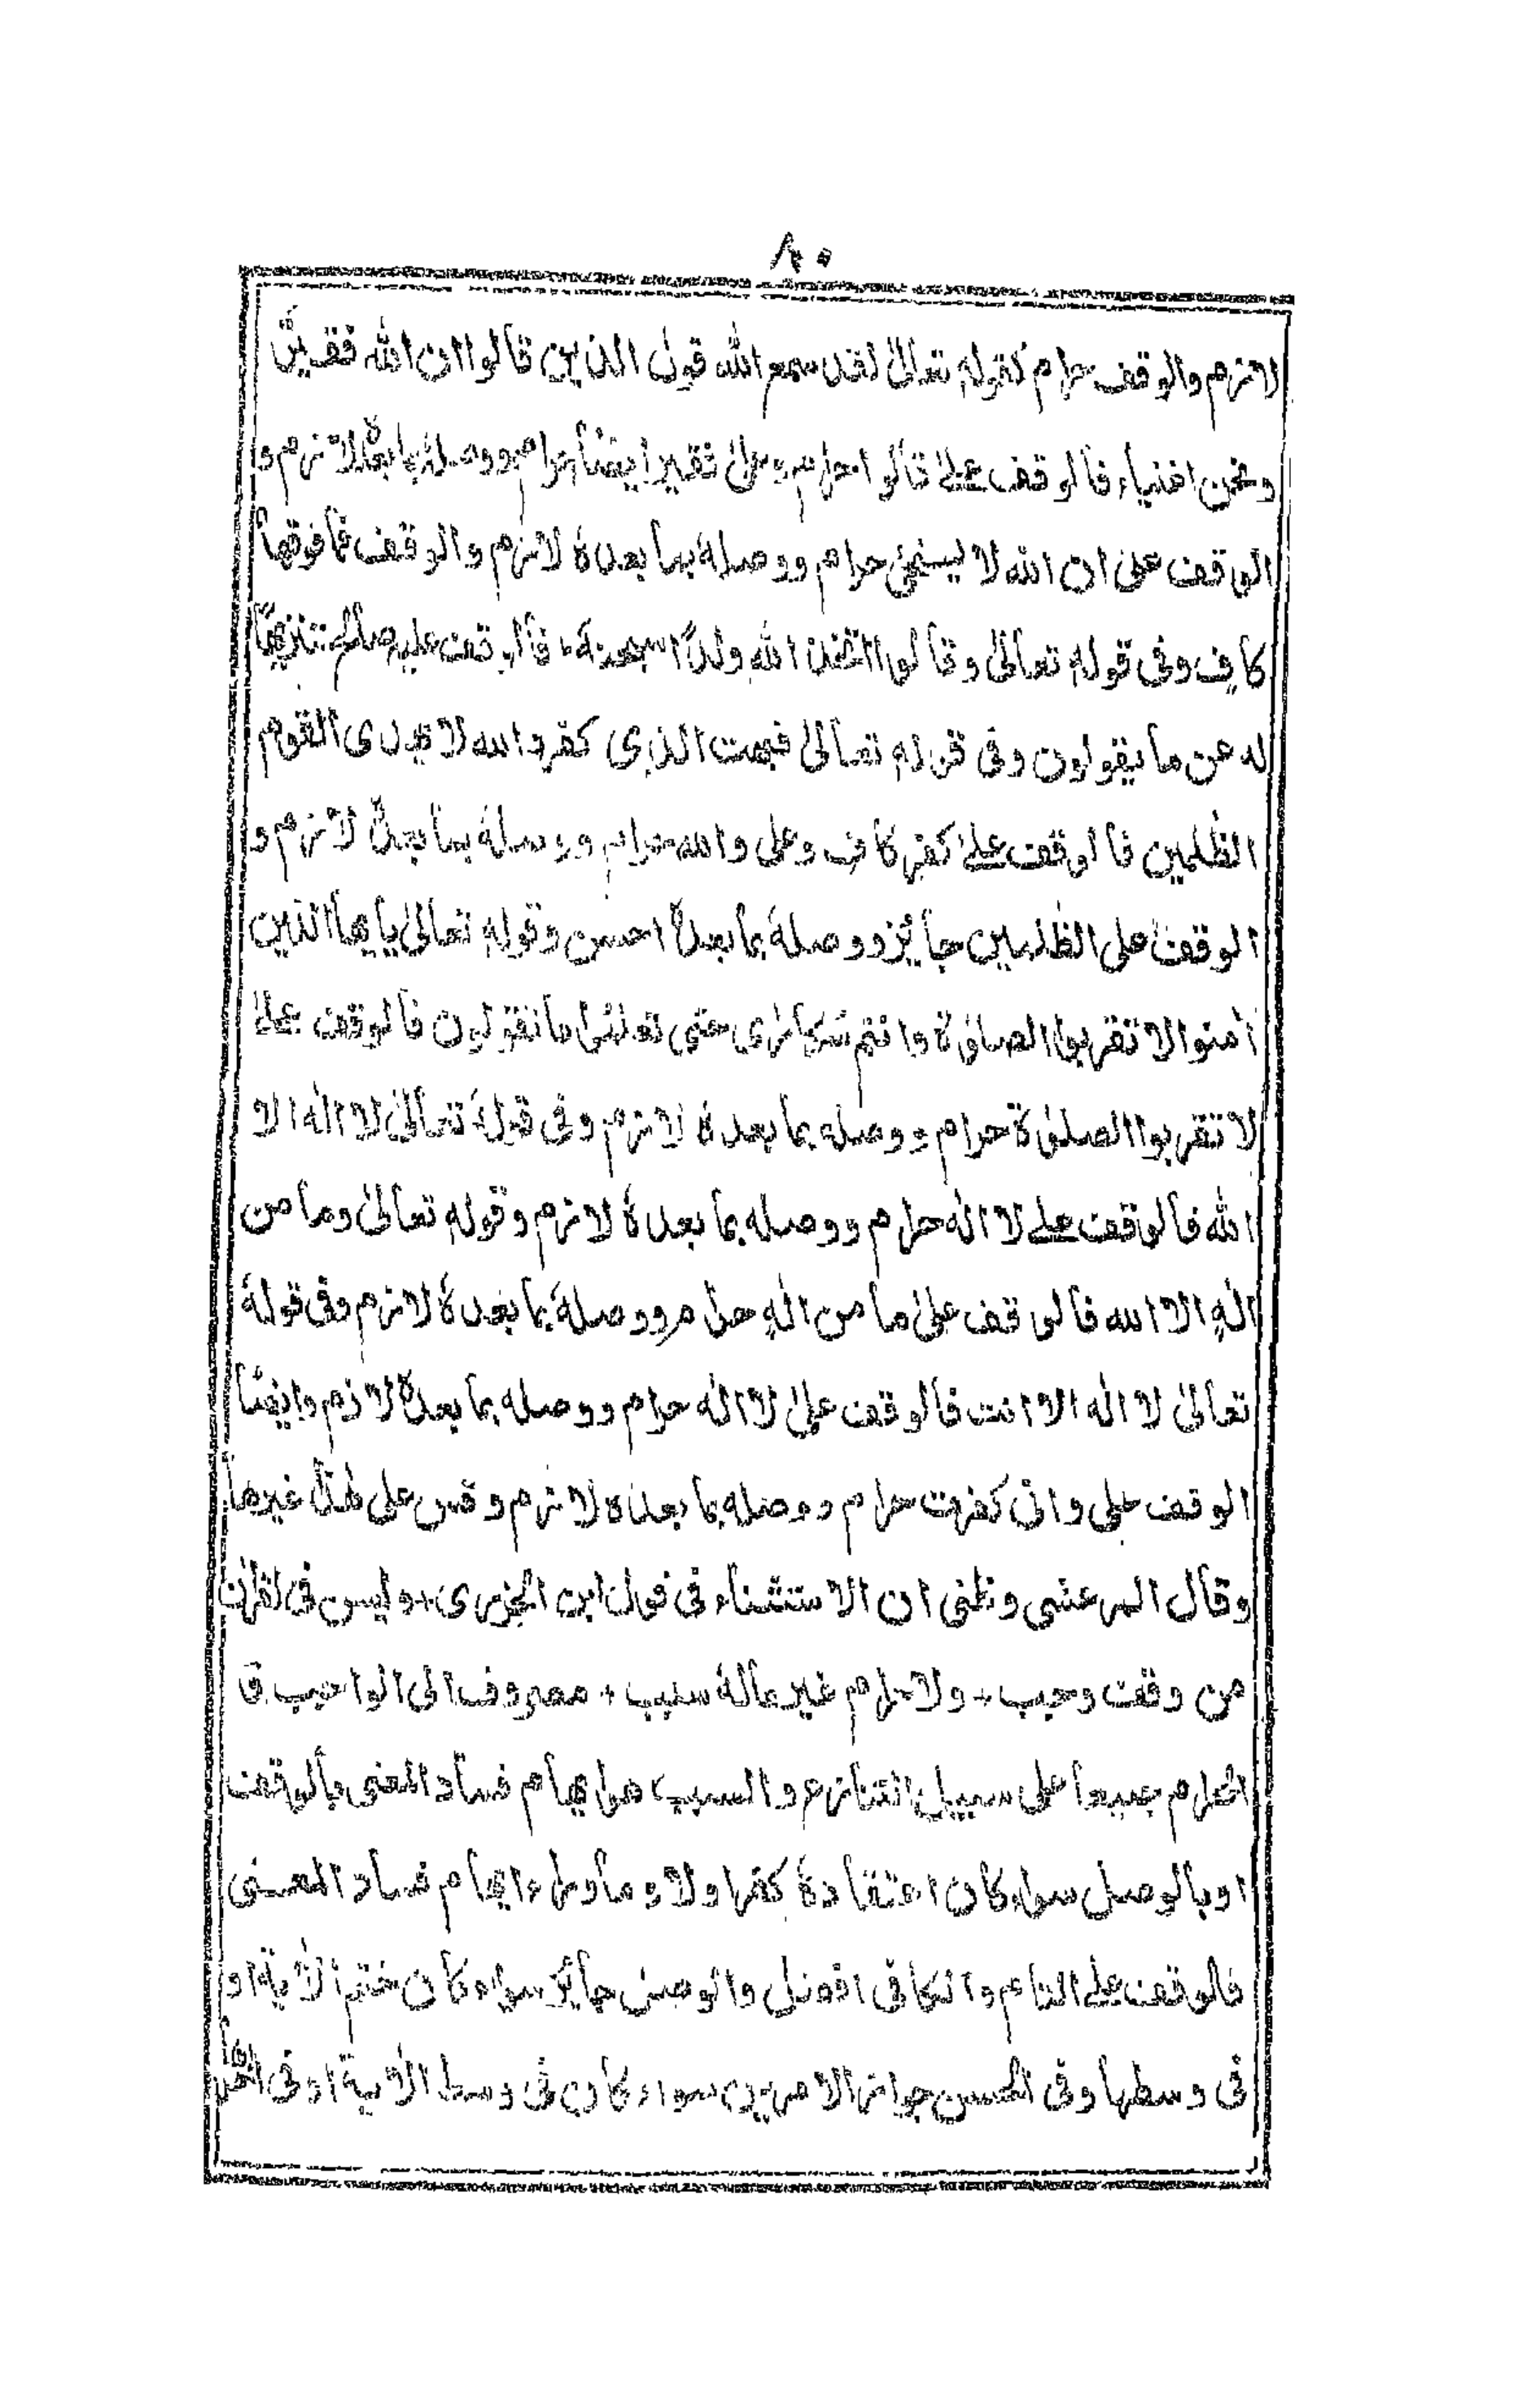 ٨٠
لازم والوقف حرام كقوله تعالىٰ لقد سمع الله قول الذين قالوا ان الله فقير
ونحن اغنياء فالوقف علىٰ قالوا حرام وعلىٰ فقير ايضًا حرام ووصله بما بعدهٗ لازم و
الوقف علىٰ ان الله لا يستحيٖ حرام ووصلهٗ بما بعدهٗ لازم والوقف فما فوقها
كافٍ وفى قولهٖ تعالىٰ وقالوا اتخذ الله ولدًا سبحٰنهٗ فالوقف عليه صالح تنزيهًا
له عن ما يقولون وفى قوله تعالىٰ فبهت الذى كفر والله لا يهدى القوم
الظٰلمين فالوقف علىٰ كفر كافٍ وعلى والله حرام ووصلهٗ بما بعدهٗ لازم و
الوقف على الظٰلمين جائز ووصلهٗ بما بعدهٗ احسن وقولهٖ تعالىٰ يايها الذين
اٰمنوا لا تقربوا الصلوٰة وانتم سكارٰى حتى تعلموا ما تقولون فالوقف علىٰ
لا تقربوا الصلوٰة حرام ووصله بما بعدهٗ لازم وفى قولهٖ تعالىٰ لا الٰه الا
الله فالوقف علے لا الٰه حرام ووصله بما بعدهٗ لازم وقولهٖ تعالىٰ وما من
الٰهٍ الا الله فالوقف علىٰ ما من الٰهٍ حرام ووصلهٗ بما بعدهٗ لازم وفى قولهٖ
تعالىٰ لا الٰه الا انت فالوقف علىٰ لا الٰه حرام ووصله بما بعدهٗ لازم وايضًا
الوقف على وانى كفرت حرام ووصله بما بعده لازم وقس على هٰذا غيرها
وقال المرعشى وظنى ان الاستثناء فى قول ابن الجزرى وليس فى القراٰن
من وقف وجب ولا حرام غير مالهٗ سبب مصروف الى الواجب و
الحرام جميعا على سبيل التنازع والسبب هو ايهام فساد المعنى بالوقف
او بالوصل سواء كان اعتقادهٗ كفرا ولا وما وراء ايهام فساد المعنى
فالوقف علے التام والكافى افضل والوصل جائز سواء كان ختم الاٰية او
فى وسطها وفى الحسن جواز الامرين سواء كان فى وسط الاٰية او فى